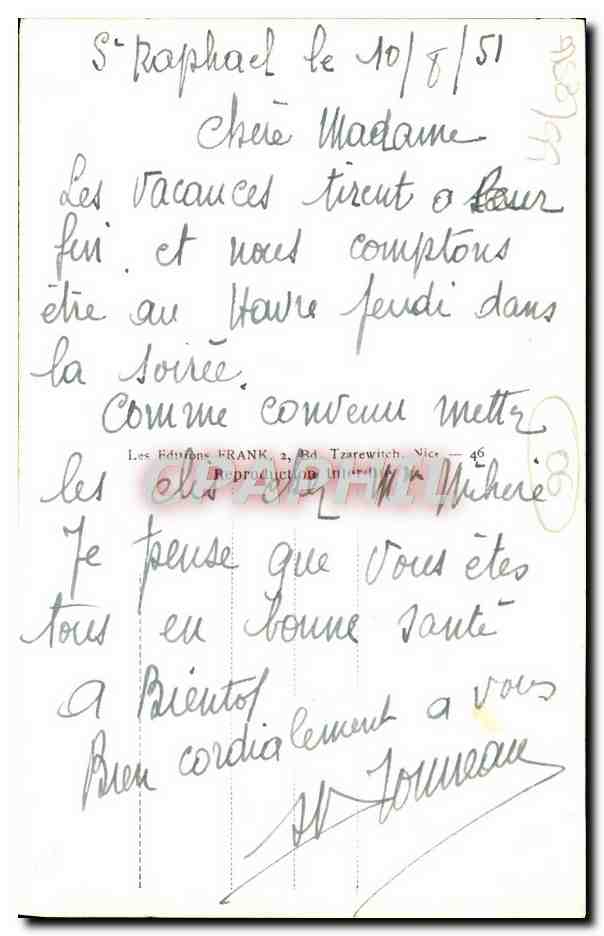 St Raphael le 10/8/51
Chère Madame
Les vacances tirent a leur
fin. et nous comptons
être au Havre Jeudi dans
la soirée.
Comme convenu mettez
Les Editions FRANK, 2, Bd. Tzarewitch, Nice — 46
Reproduction Interdite
CPAPHIL
les clés chez Mr
Je pense que vous êtes
tous en bonne santé
A Bientot
Bien cordialement a vous
90